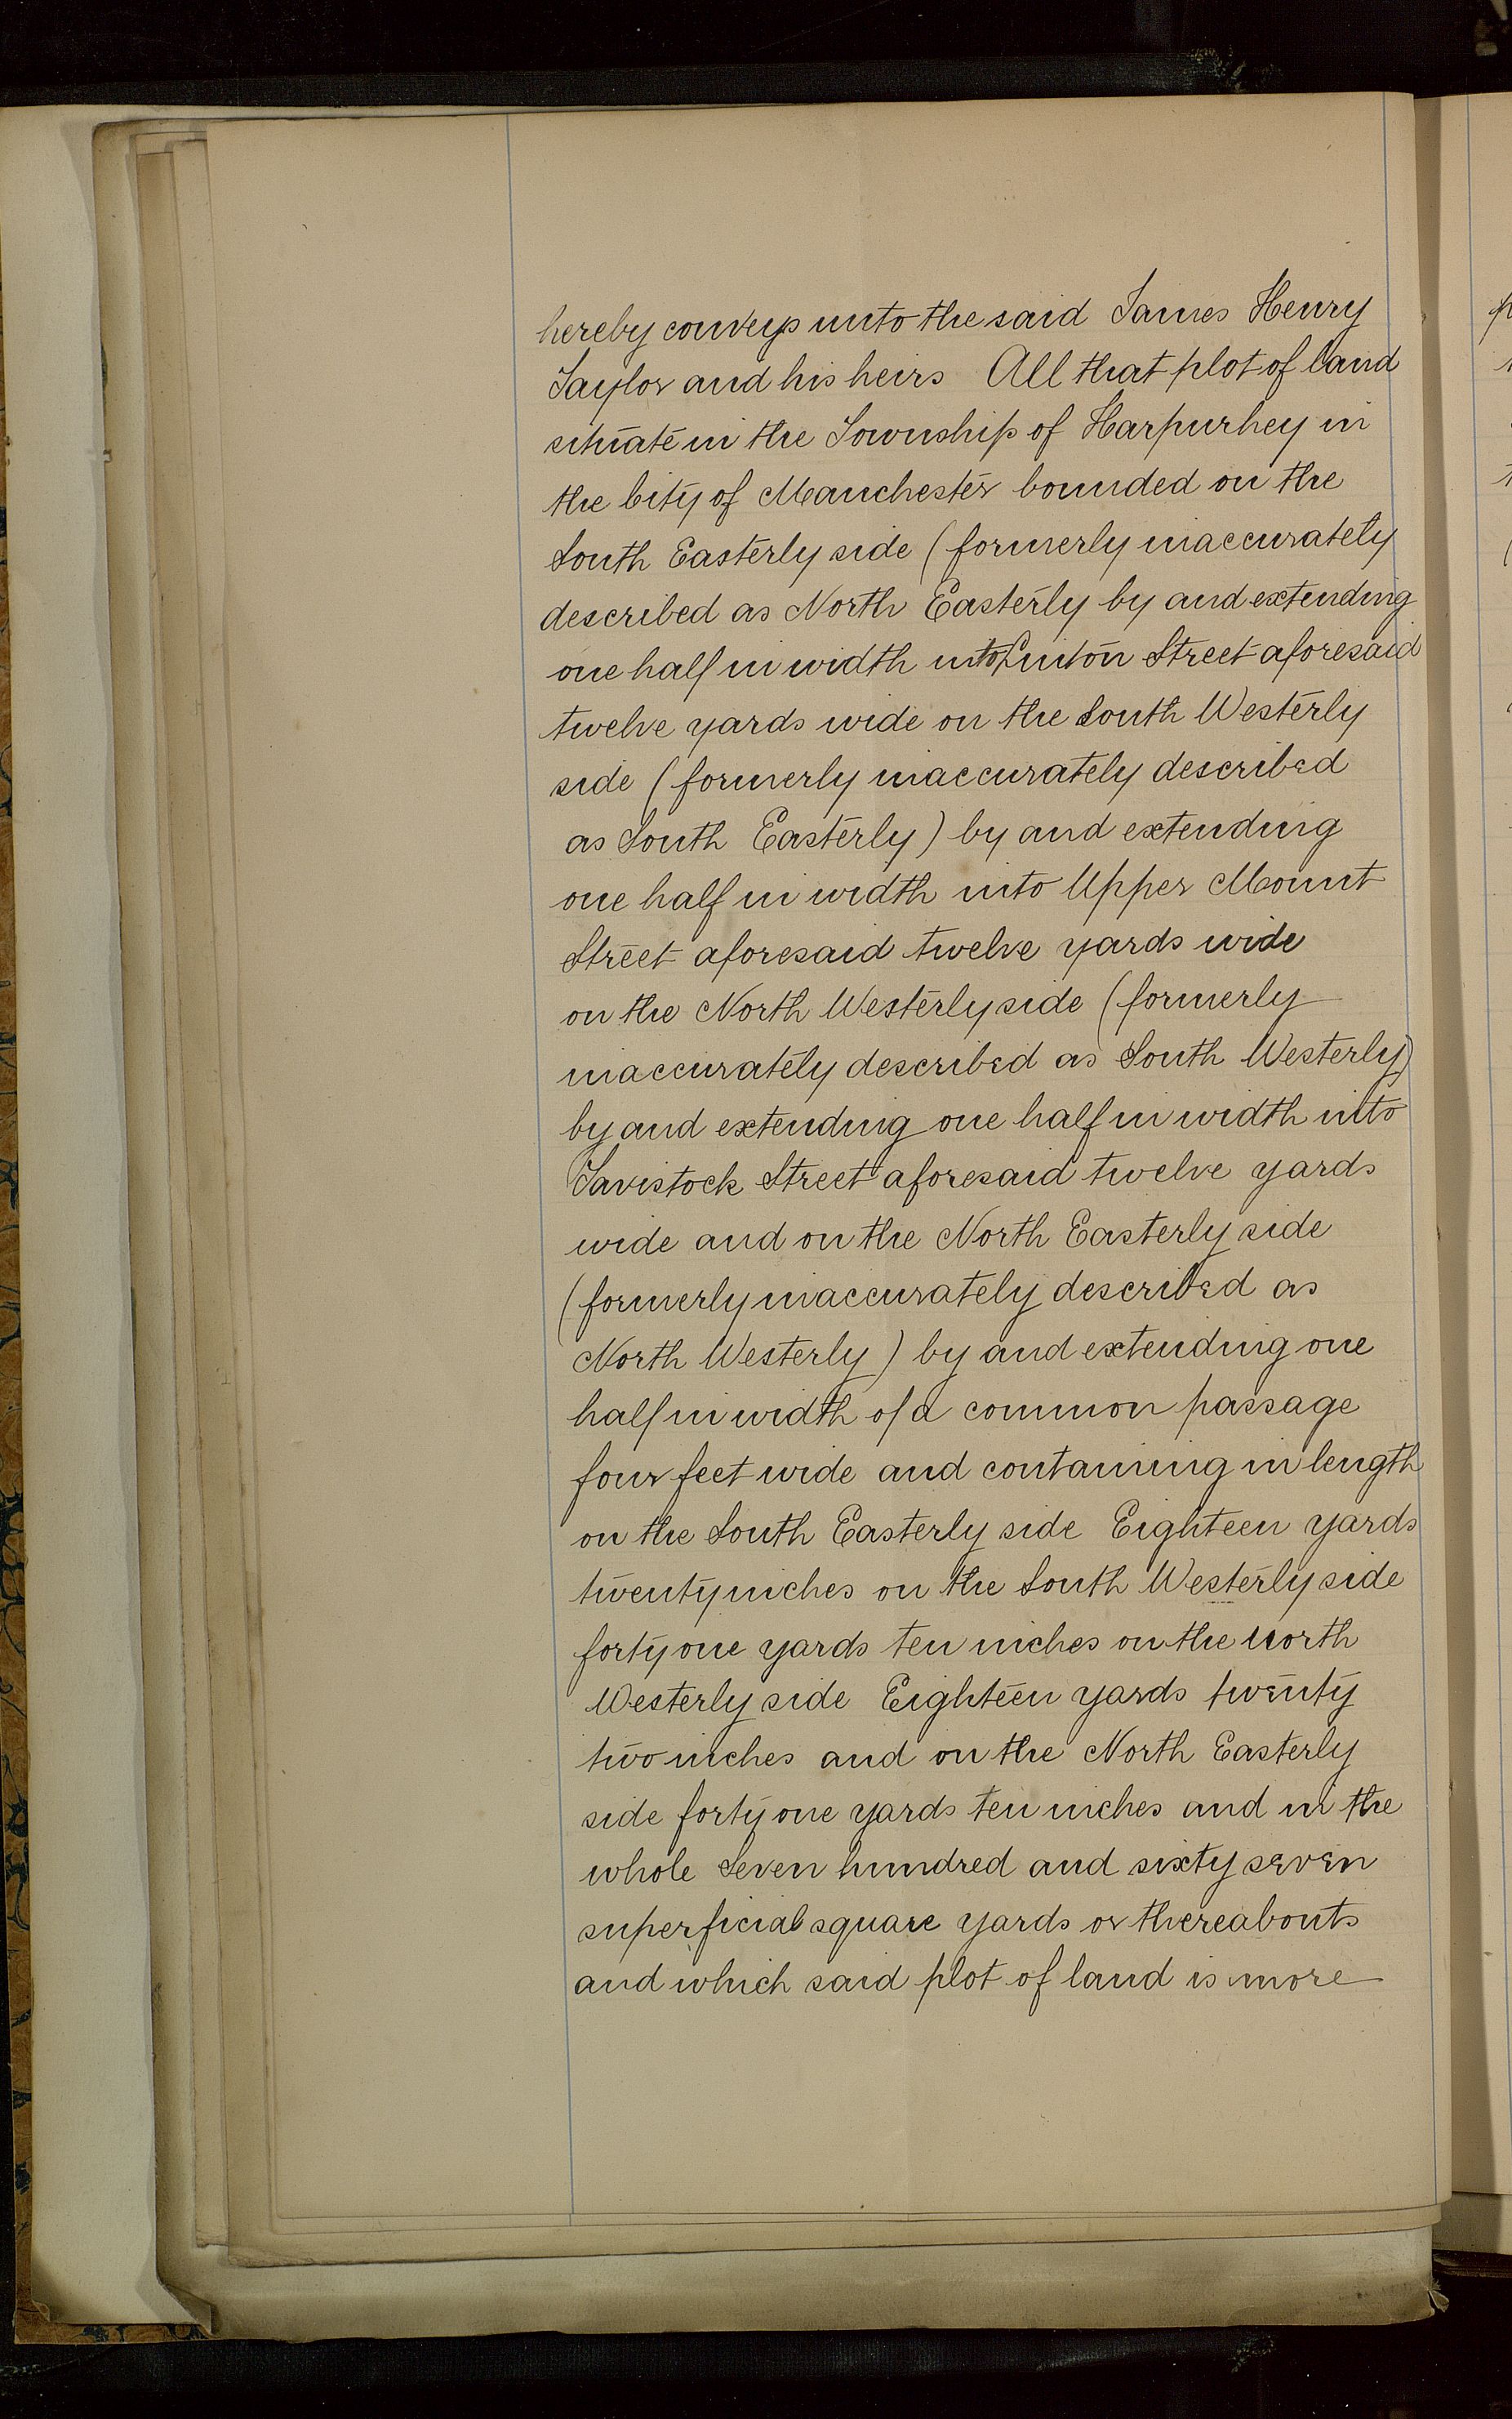 hereby conveys unto the said James Henry
Taylor and his heirs All that plot of land
situate in the Township of Harpurhey in
the City of Manchester bounded on the
South Easterly side (formerly inaccurately
described as North Easterly by and extending
one half in width into Linton Street aforesaid
twelve yards wide on the South Westerly
side (formerly inaccurately described
as South Easterly) by and extending
one half in width into Upper Mount
Street aforesaid twelve yards wide
on the North Westerly side (formerly
inaccurately described as South Westerly)
by and extending one half in width into
Tavistock Street aforesaid twelve yards
wide and on the North Easterly side
(formerly inaccurately described as
North Westerly) by and extending one
half in width of a common passage
four feet wide and containing in length
on the South Easterly side Eighteen yards
twenty inches on the South Westerly side
forty one yards ten inches on the north
Westerly side Eighteen yards twenty
two inches and on the North Easterly
side forty one yards ten inches and in the
whole Seven hundred and sixty seven
superficial square yards or thereabouts
and which said plot of land is more